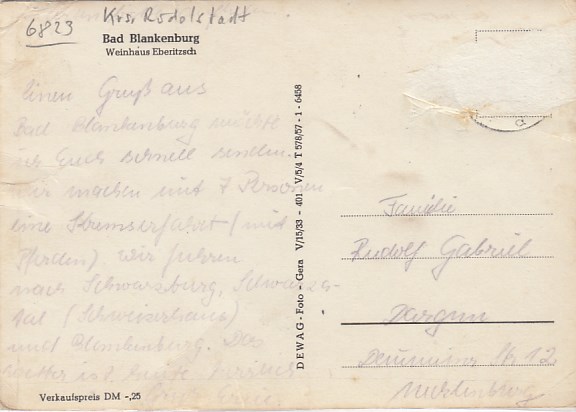 6823 Krs. Rudolstadt
Bad Blankenburg
Weinhaus Eberitzsch
Einen Gruß aus
Bad Blankenburg möcht
ich Euch schnell senden.
Wir machen mit 7 Personen
eine Kremserfahrt (mit
Pferden) wir fuhren
nach Schwarzburg, Schwarza-
tal (Schweizerhaus)
und Blankenburg. Das
Wetter ist heute
DEWAG-Foto - Gera V/15/33 - 401 V/5/4 T 578/57 - 1 - 6458
Familie
Rudolf Gabriel
Dargun
Demminer Str 12
Mecklenburg
Verkaufspreis DM -,25